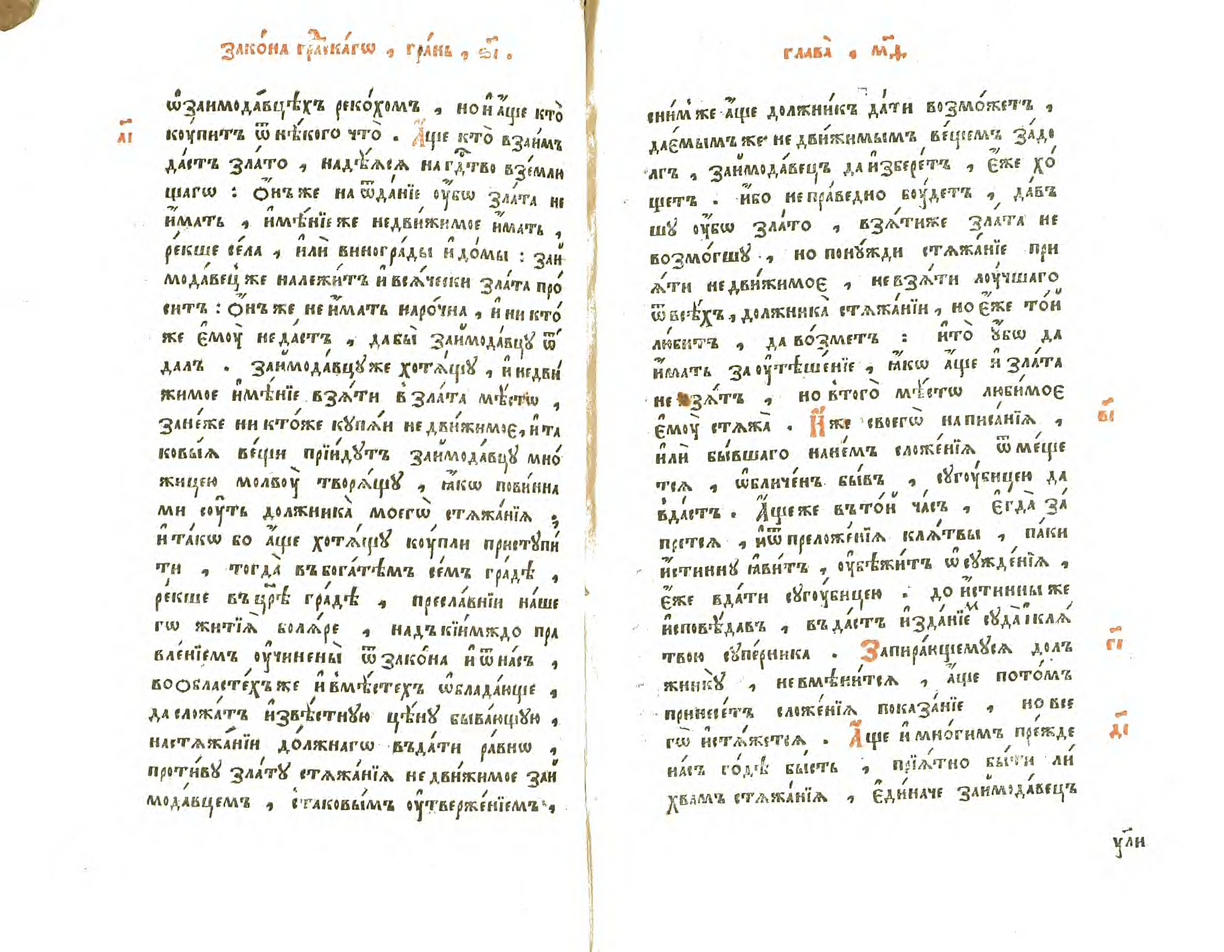 Зако́на гра́дскагѡ , гра́нь , ѕ҃і .
ѡ҆заимода́вцѣхъ реко́хомъ , но и҆ а҆́ще кто̀
а҃і
коу́питъ ѿ нѣ́кого что̀ . А҆́ще кто̀ взаимъ
да́стъ зла́то , надѣ́ѧсѧ на гд҇тво вземлю
щагѡ : О҆́нъ же на ѿда́нїе оу҆́бѡ зла́та не
и҆́мать , и҆мѣ́нїе же недви́жимое и҆́мать ,
ре́кше се́ла , и҆лѝ виногра́ды и҆ до́мы : зай
мода́вец же належи́тъ и҆ всѧ́чески зла́та про
ситъ : О҆́нъ же не и҆́мать наро́чна , и҆ ни кто́
же є҆моу̀ не да́стъ , да бы̀ займода́вцу ѿ
далъ . займода́вцу же хотѧ́щу , и҆ недви
жимое и҆мѣ́нїе взѧ́ти в зла́та мѣ́стѡ ,
зане́же ни кто́же купѧ́й не дви́жимое , и҆ та
ковы́ѧ ве́щи прїи́дутъ займода́вцу мно́
жицею молвоу̀ творѧ́щу , ꙗ҆́кѡ пови́нна
ми соу́ть должника̀ моегѡ̀ стѧжа́нїѧ ;
и҆ та́кѡ бо а҆́ще хотѧ́щу коу́пли приступи́
ти , тогда̀ в бога́тѣмъ се́мъ гра́дѣ ,
ре́кше въ цр҃ѣ гра́дѣ , пресла́внїи на́ше
гѡ житїѧ̀ болѧ́ре , надъ кїи́мждо пра
вле́нїемъ оу҆чинены̀ ѿ зако́на и҆ ѿ на́съ ,
во о́бластехъ же и҆ в мѣ́стехъ ѡ҆блада́юще ,
да сложа́тъ и҆звѣ́стную цѣ́ну быва́ющую ,
на стѧжа́нїи до́лжнагѡ въда́ти ра́внѡ ,
проти́ву зла́ту стѧжа́нїѧ не дви́жимое зай
мода́вцемъ , с таковы́мъ оу҆твержде́нїемъ ,
глава̀ , м҃д .
сни́мже а҆́ще должни́къ да́ти возмо́жетъ ,
дае́мымъ же не дви́жимымъ ве́щемъ за до
лгъ , займода́вецъ да и҆збере́тъ , є҆́же хо́
щетъ . и҆́бо не пра́ведно боу́детъ , да́въ
шу оу҆́бѡ зла́то , взѧ́ти же зла́та не
возмо́гшу , но пону́жди стѧжа́нїе при
ѧ́ти не дви́жимое , не взѧ́ти лоу́чшаго
ѿ всѣ́хъ , должника̀ стѧжа́нїи , но є҆́же то́й
лю́битъ , да во́зметъ : и҆ то̀ у҆́бѡ да
и҆́мать за оу҆тѣше́нїе , ꙗ҆́кѡ а҆́ще и҆ зла́та
не взѧ́тъ , но в того̀ мѣ́стѡ люби́мое
є҆моу̀ стѧжа̀ . И҆́же своегѡ̀ написа́нїѧ ,
в҃і
и҆лѝ бы́вшаго на не́мъ сложе́нїѧ ѿме́ще
тсѧ , ѡ҆бличе́нъ бы́въ , сугоу́бицею да
вда́стъ . А҆́ще же въ то́й ча́съ , є҆гда̀ за́
претсѧ , и҆ ѿ преложе́нїѧ клѧ́твы , па́ки
и҆́стинну ꙗ҆ви́тъ , оу҆бѣжи́тъ ѡ҆сужде́нїѧ ,
є҆́же вда́ти сугоу́бицею : до и҆́стинны же
и҆сповѣ́давъ , въда́стъ и҆зда́нїе суда̀ і клѧ́
твою супе́рника . Запира́ющемусѧ долъ
г҃і
жнику̀ , не вмѣни́тсѧ , а҆́ще пото́мъ
принесе́тъ сложе́нїѧ показа́нїе , но все
гѡ̀ и҆стѧ́жетсѧ . А҆́ще и҆ мно́гимъ пре́жде
д҃і
на́съ го́дѣ бы́сть , прїѧ́тно бы́ти ли
хва́мъ стѧжа́нїѧ , є҆ди́наче займода́вецъ
у҆́ли